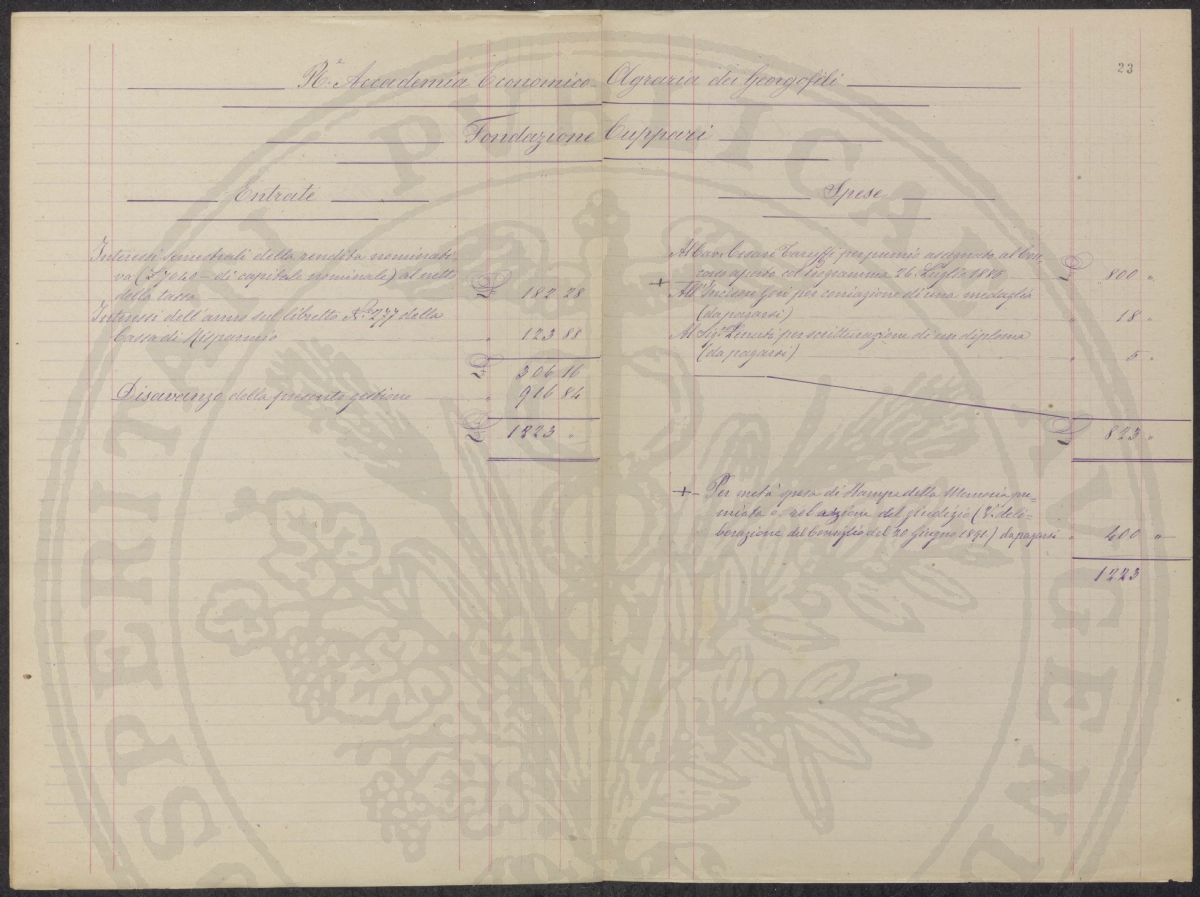 23
R.ª Accademia Economico-Agraria dei Georgofili
Fondazione Cuppari
Entrate
Interessi semestrali della rendita nominati-
va (L 7040 — di capitale nominale) al netto
della tassa L 182 28
Interessi dell'anno sul libretto N.º 277 della
Cassa di Risparmio " 123 88
L 306 16
Disavanzo della presente gestione " 916 84
L 1223 "
Spese
Al Cav. Cesare Taruffi per premio assegnato al Con-
corso aperto col programma 26 Luglio 1885 L 800 "
+ All'Incisore Gori per coniazione di una medaglia
(da pagarsi) " 18 "
Al Sig.r per scritturazione di un diploma
(da pagarsi) " 5 "
L 823 "
+ Per metà spesa di stampa della Memoria pre-
miata e relazione del giudizio (V. deli-
berazione del Consiglio del 20 Giugno 1891) da pagarsi " 400 "
1223
PERITATI PVBLICAE AVGEN